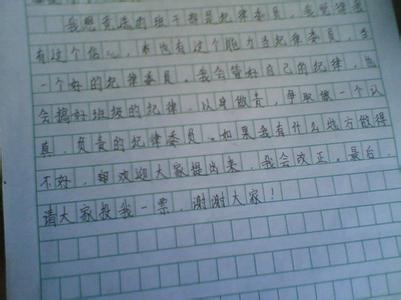 我想竞选的班干部是纪律委员,我觉得我
有这个信心,也有这个能力当纪律委员,当
一个好的纪律委员,我会管好自己的纪律,也
会搞好班级的纪律,以身做责,争取做一个认
真,负责的纪律委员。如果我有什么地方做得
不好,欢迎大家提出来,我会改正,最后,
请大家投我一票,谢谢大家!